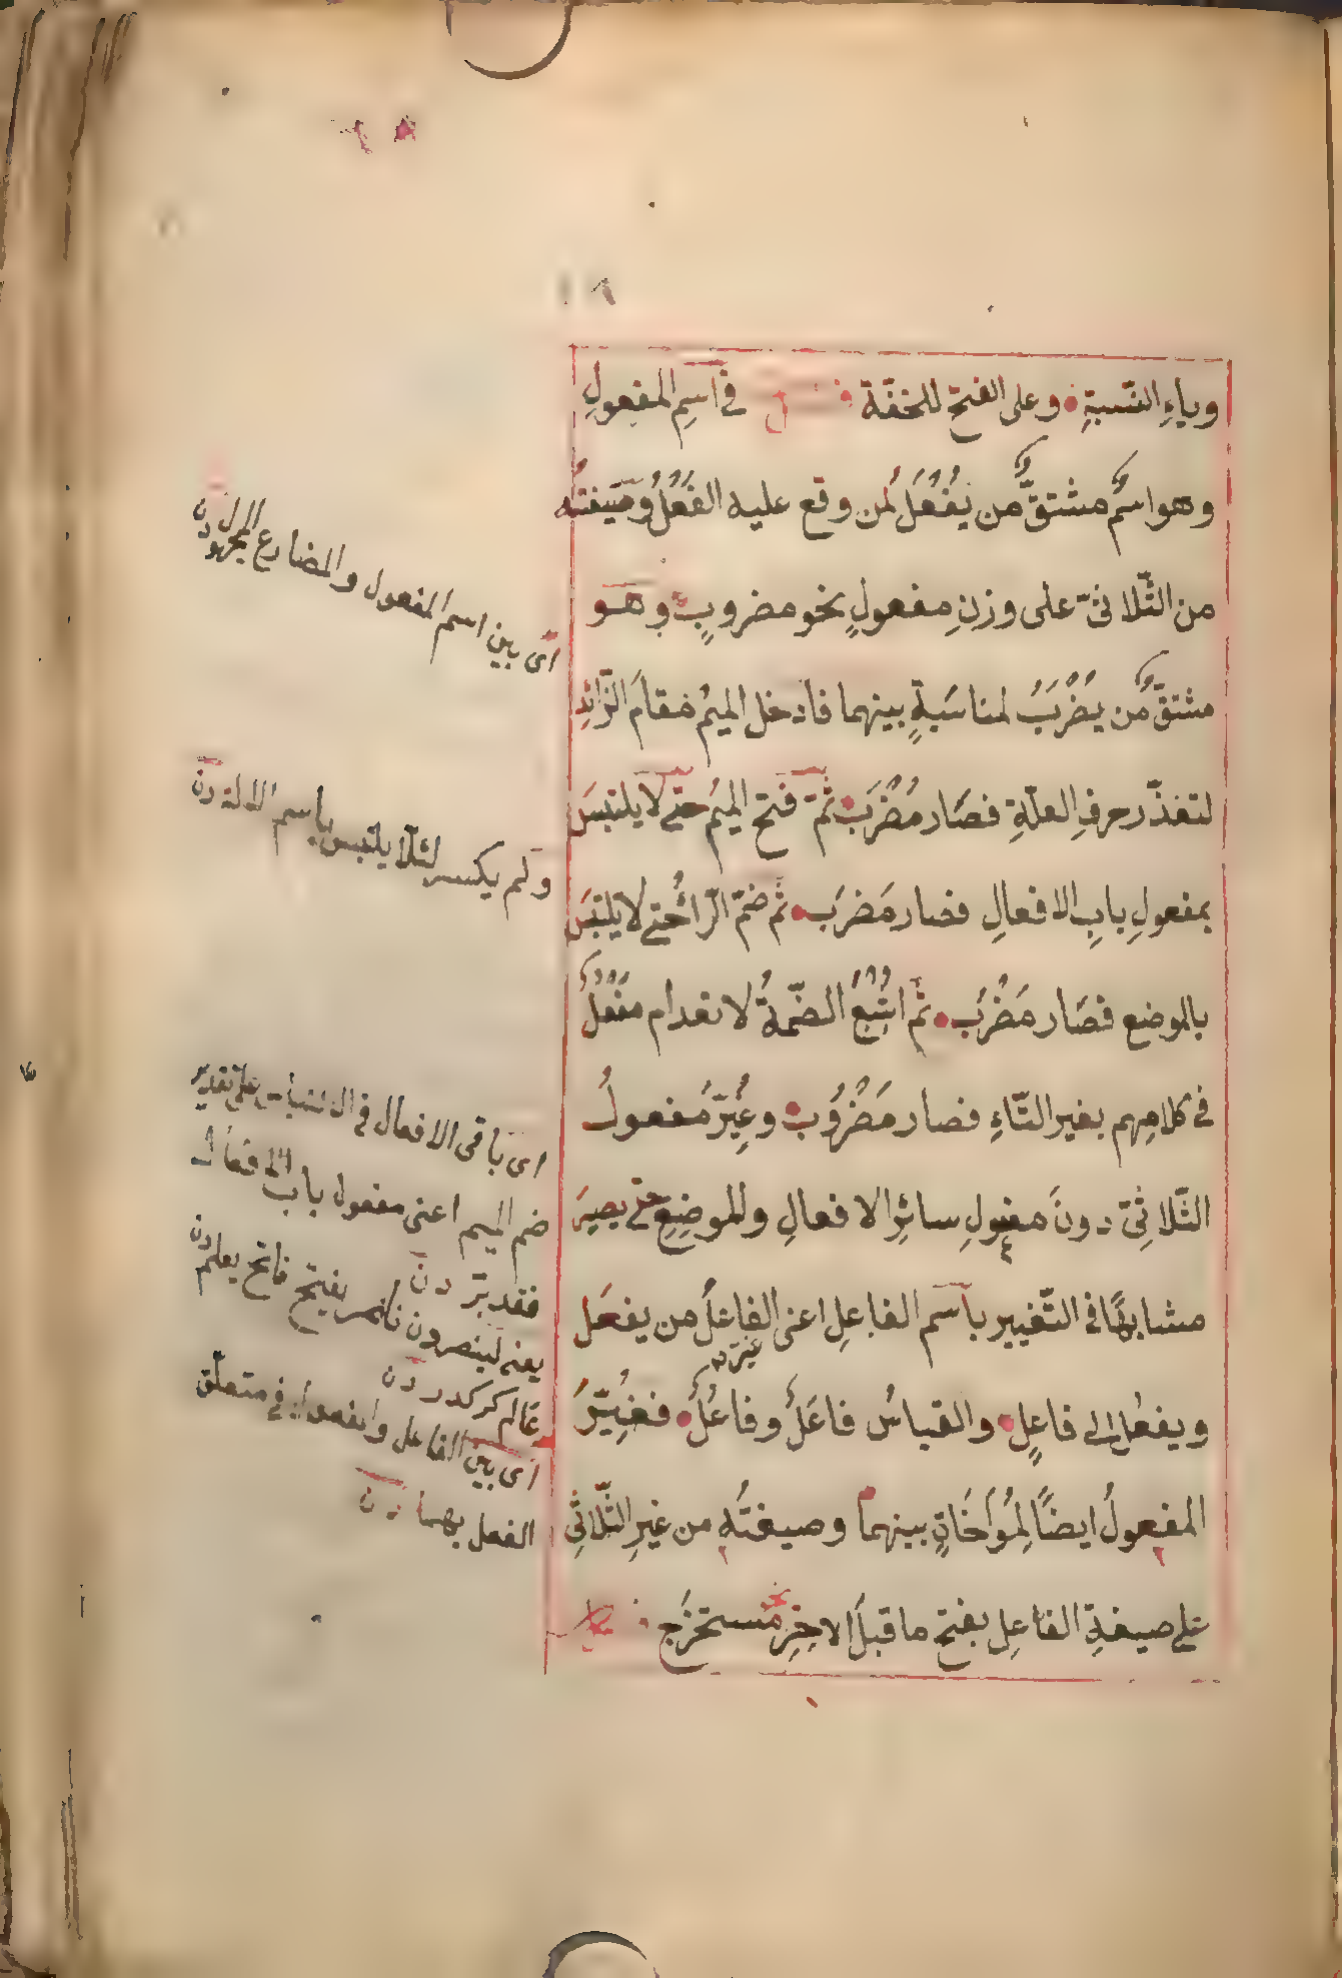 وياءِ النّسبةِ وعلى الفتح للخفّة فصل فى اسمِ المفعولِ
وهو اسمٌ مشتقٌّ من يُفْعَلُ لمن وقع عليه الفِعْلُ وصيغتُه
من الثّلاثىّ على وزنِ مفعولٍ نحو مضروبٍ وهو
مشتقٌّ من يُضْرَبُ لمناسَبةٍ بينهما فادخل الميمُ مقامَ الزّائدِ
لتعذّر حرفِ العلّةِ فصَار مُضْرَبٌ ثمّ فتح الميمُ حتى لا يلتبسَ
بمفعولِ بابِ الافعالِ فصار مَضْرَبٌ ثم ضمّ الرّاءُ حتى لا يلتبسَ
بالموضع فصَار مَضْرُبٌ ثم اشْبِعُ الضّمةُ لانعدام مَفْعُلٌ
فى كلامِهِم بغير التّاءِ فصار مَضْرُوبٌ وغُيِّرَ مفعولُ
الثّلاثِىّ دونَ مفعولِ سائرِ الافعالِ والموضِعِ حتى يصيرَ
مشابهًا فى التّغيير باسم الفاعلِ اعنى الفاعلُ من يفعَل
غيّر
ويفعُل الى فاعِلٍ والقياسُ فاعَلٌ وفاعُلٌ فغُيّرَ
المفعولُ ايضًا لِمُوَاخَاتٍ بينهما وصيغتُه من غيرِ الثّلاثِىّ
على صيغةِ الفاعِلِ بفتح ما قبلَ الاخِرِ نحو مُستخرَج
اى بين اسم المفعول والمضارع المجهول
ولم يكسر لئلّا يلتبس باسم الالة
اى باقى الافعال فى
ضم الميم اعنى مفعول باب الافعال
فقدبّر
يفتح فاتح يعلم
عالم
اى بين الفاعل والمفعول فى متعلّق
الفعل بهما